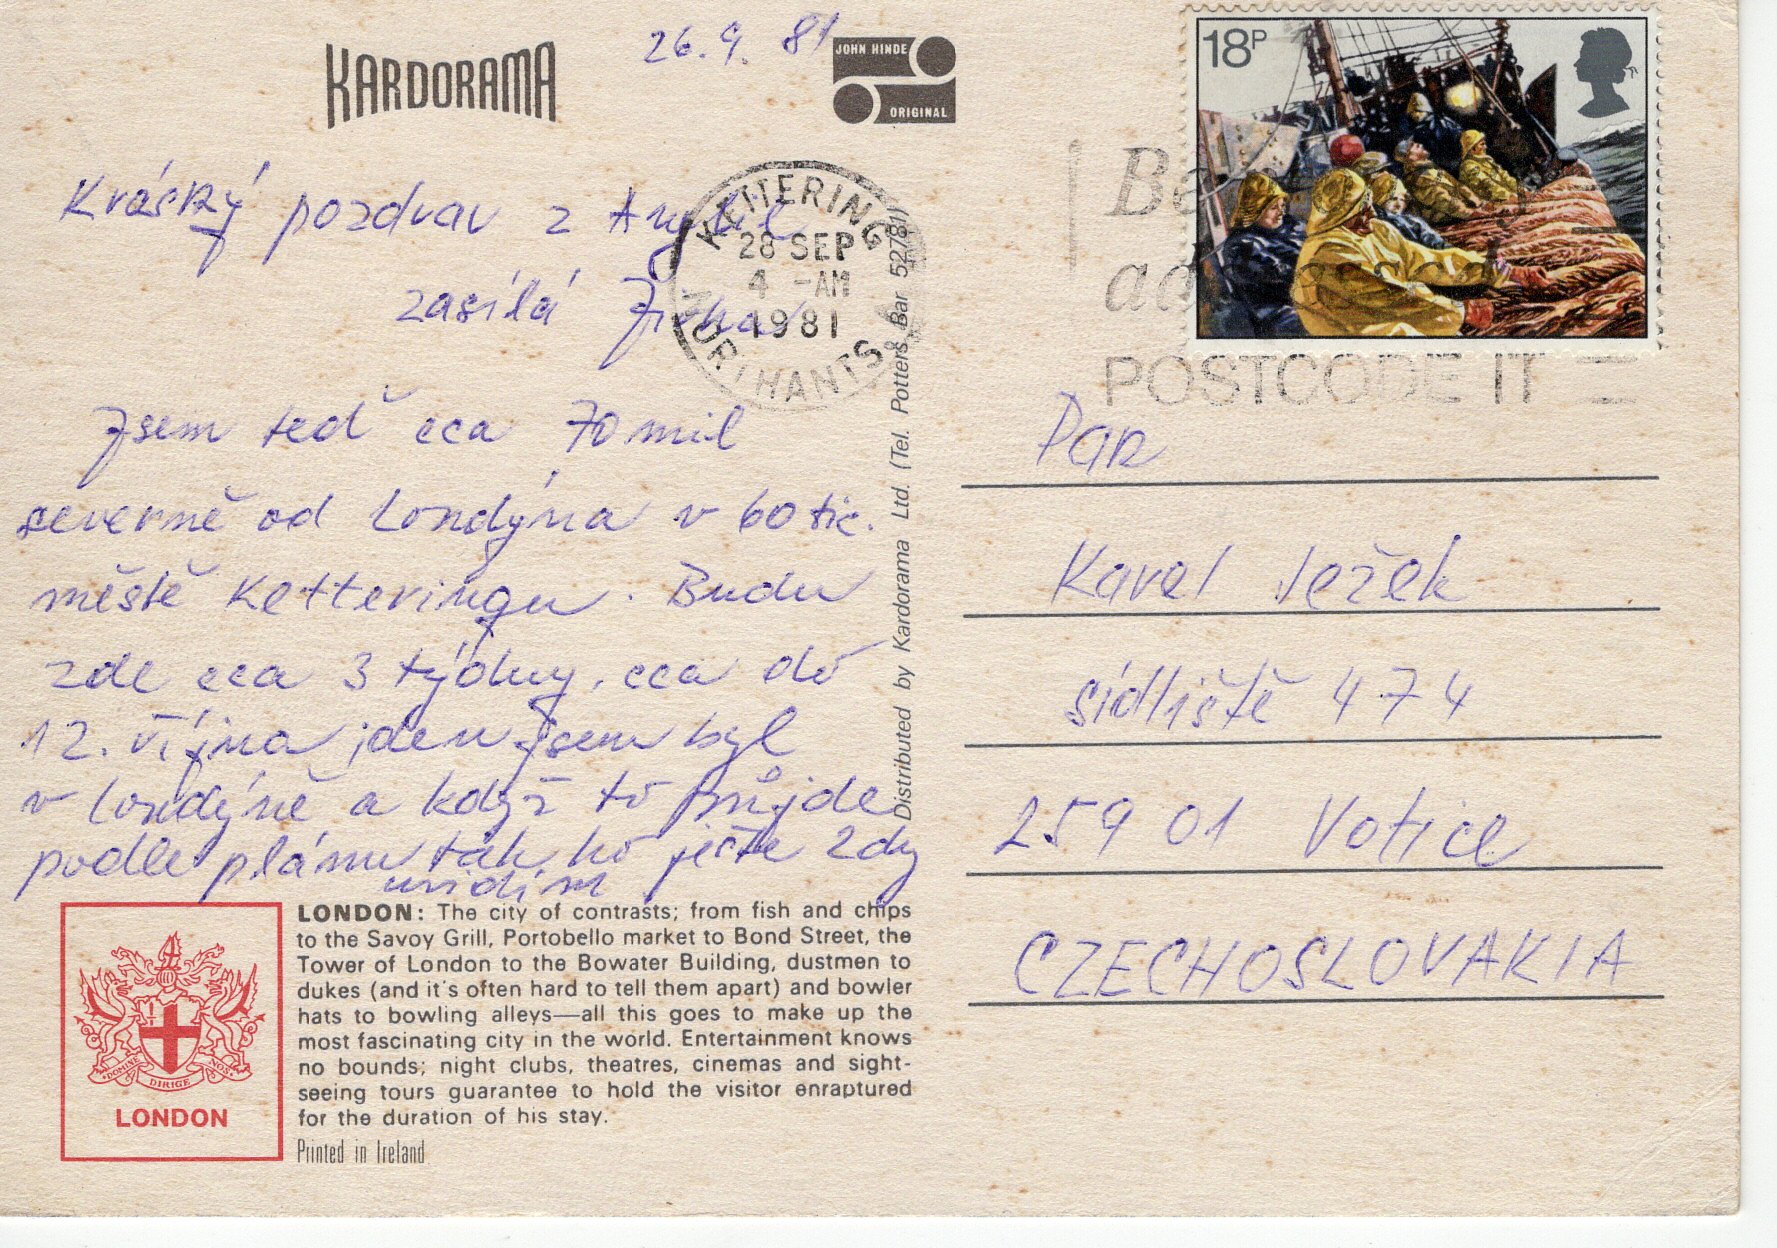 26.9.81
KARDORAMA
JOHN HINDE
ORIGINAL
18P
Krásný pozdrav z Anglie
zasílá Jirka
KETTERING
28 SEP
4 -AM
1981
NORTHANTS
POSTCODE IT
Jsem teď cca 70 mil
severně od Londýna v 60 tis.
městě Ketteringu. Budu
zde cca 3 týdny, cca do
12. října jden jsem byl
v Londýně a když to půjde
podle plánu tak ho ješte 2dy
uvidím
Distributed by Kardorama Ltd. (Tel. Potters Bar 52781)
Pan
Karel Ježek
sídliště 474
259 01 Votice
CZECHOSLOVAKIA
LONDON: The city of contrasts; from fish and chips
to the Savoy Grill, Portobello market to Bond Street, the
Tower of London to the Bowater Building, dustmen to
dukes (and it's often hard to tell them apart) and bowler
hats to bowling alleys—all this goes to make up the
most fascinating city in the world. Entertainment knows
no bounds; night clubs, theatres, cinemas and sight-
seeing tours guarantee to hold the visitor enraptured
for the duration of his stay.
Printed in Ireland
DOMINE DIRIGE NOS
LONDON